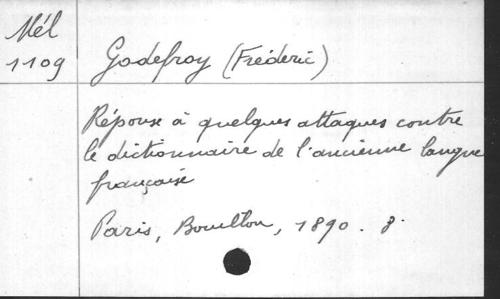 Mél
1109
Godefroy (Fréderic)
Réponse à quelques attaques contre
le dictionnaire de l'ancienne langue
française
Paris, Bouillon, 1890.